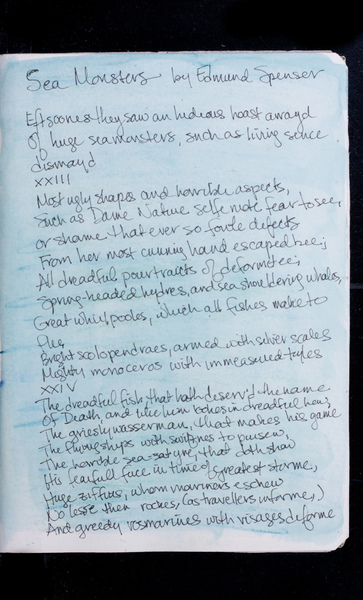 Sea Monsters by Edmund Spenser
Eftsoones they saw an hideous hoast arrayd
Of huge sea monsters, such as living sence
dismayd
XXIII
Most ugly shapes and horrible aspects,
Such as Dame Nature selfe mote fear to see,
or shame that ever so fowle defects
From her most cunning hand escaped bee;
All dreadful pourtraicts of deformitee;
Spring-headed hydres, and sea shouldering whales,
Great whirlpooles, which all fishes make to
flee
Bright scolopendraes, armed with silver scales
Mighty monoceros with immeasured tayles
XXIV
The dreadful fish that hath deserv'd the name
Of Death, and like him lookes in dreadful hew,
The griesly wasserman, that makes his game
The flying ships with swiftnes to pursew,
The horrible sea-satyre, that doth show
His fearfull face in time of greatest storme,
Huge ziffius, whom mariners eschew
No lesse then rockes, (as travellers informe,)
And greedy rosmarines with visages deforme